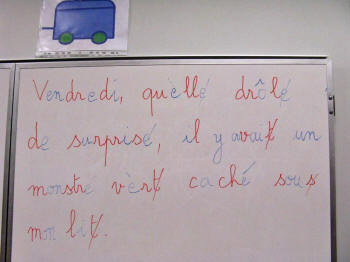 Vendredi, quèlle drôle
de surprise, il y avait un
monstre vèrt caché sous
mon lit.